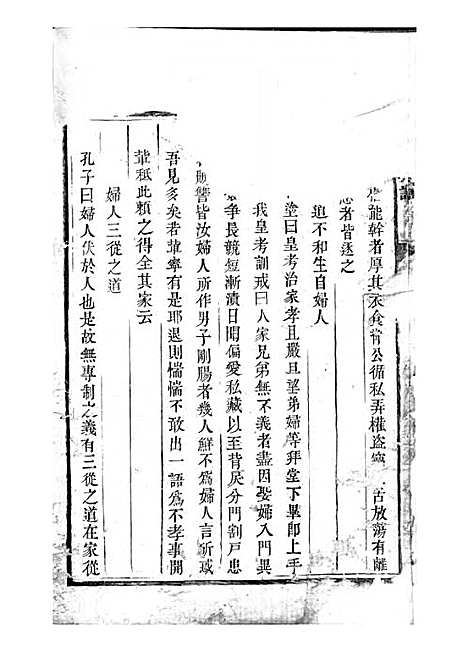 能幹者厚其衣食背公循私弄權盜 舌放蕩有離
惡者皆逐之
追不和生自婦人
塗曰皇考治家孝且嚴旦望弟婦等拜堂下畢卽上手
我皇考訓戒曰人家兄弟無不義者盡因娶婦入門異
爭長競短漸漬日聞偏愛私藏以至背戾分門割戸患
讐皆汝婦人所作男子剛腸者幾人鮮不爲婦人言所惑
吾見多矣若輩寧有是耶退則惴惴不敢出一語爲不孝事開
輩秪此頼之得全其家云
婦人三從之道
孔子曰婦人伏於人也是故無專制之義有三從之道在家從